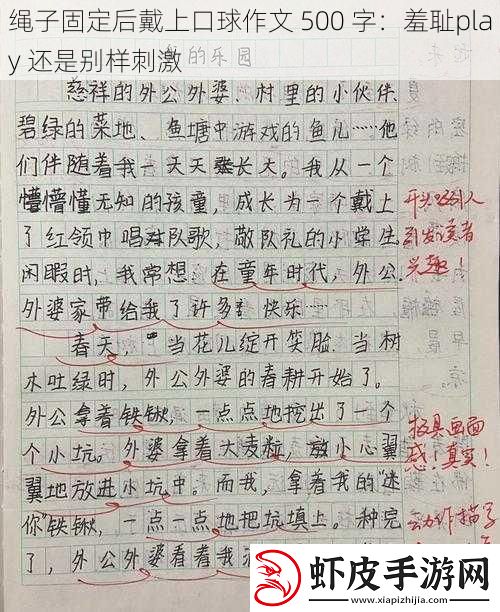 绳子固定后戴上口球作文 500 字：羞耻pla
y 还是别样刺激
的乐园
慈祥的外公外婆、村里的小伙伴、
碧绿的菜地、鱼塘中游戏的鱼儿……他
们伴随着我一天天长大。我从一个
懵懵懂懂无知的孩童，成长为一个戴上
了红领巾唱队歌，敬队礼的小学生
闲暇时，我常想，在童年时代，外公
外婆家带给我了许多快乐……
开头吸引人
引发读者
兴趣！
春天，“当花儿绽开笑脸，当树
木吐绿时，外公外婆的春耕开始了。
外公拿着铁锹，一点点地挖出了一个
个小坑。外婆拿着大麦粒，放小心翼
翼地放进小坑中。而我，拿着我的“迷
你”铁锹，一点一点地把坑填上。种完
了，外公外婆看着我
极具画面
感！真实！
动作描写
虾皮手游网
www.xiapizhijia.com